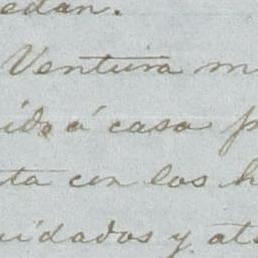 edan.
Ventura m
ido á casa p
ta con los h
uidados y at